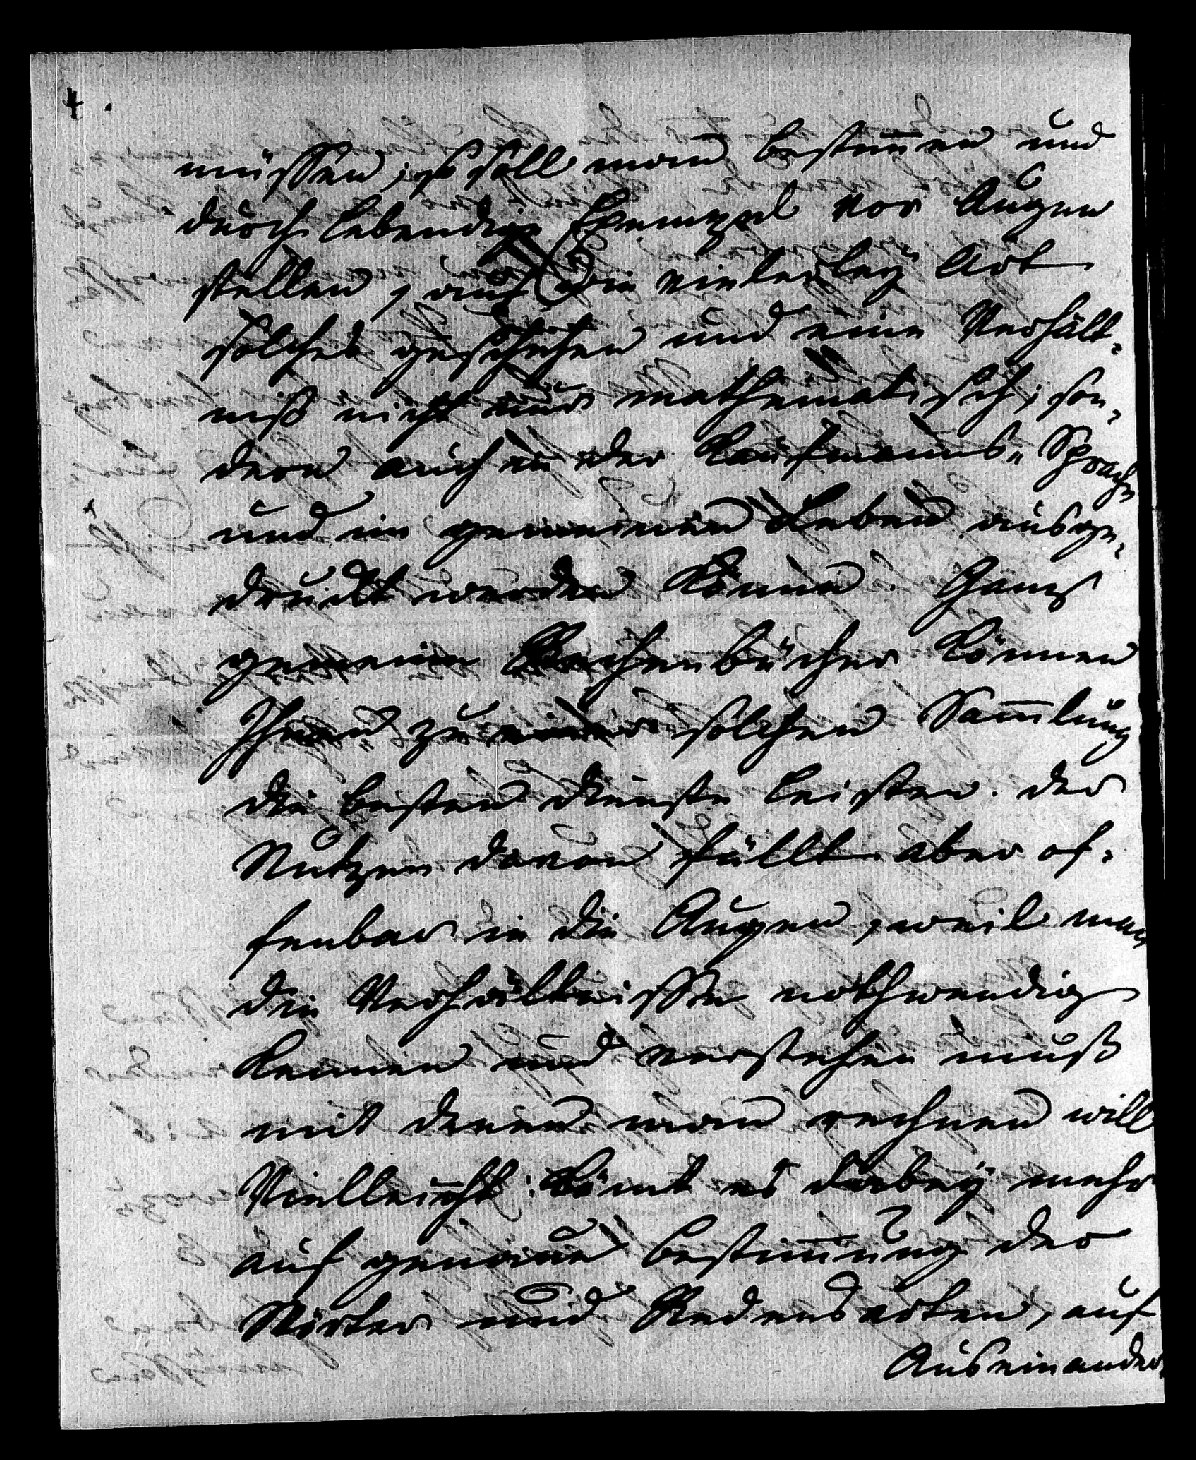 4.
müssen; so soll man bestimen und
durch lebendige Exempel vor Augen
stellen, auf wie vielerley Art
solches geschehen und eine Verhält-
niß nicht nur mathematisch, son-
dern auch in der Kaufmanns-Sprache
und im gemeinen Leben ausge-
druckt werden könne. Ganz
gemeine Rechenbücher können
Ihnen zu einer solchen Samlung
die besten Dienste leisten. der
Nutzen davon fällt aber of-
fenbar in die Augen, weil man
die Verhältnisse nothwendig
kennen und verstehen muß
mit denen man rechnen will
Vielleicht kömt es dabey mehr
auf genaue Bestimung der
Wörter und Redensarten, auf
Auseinander